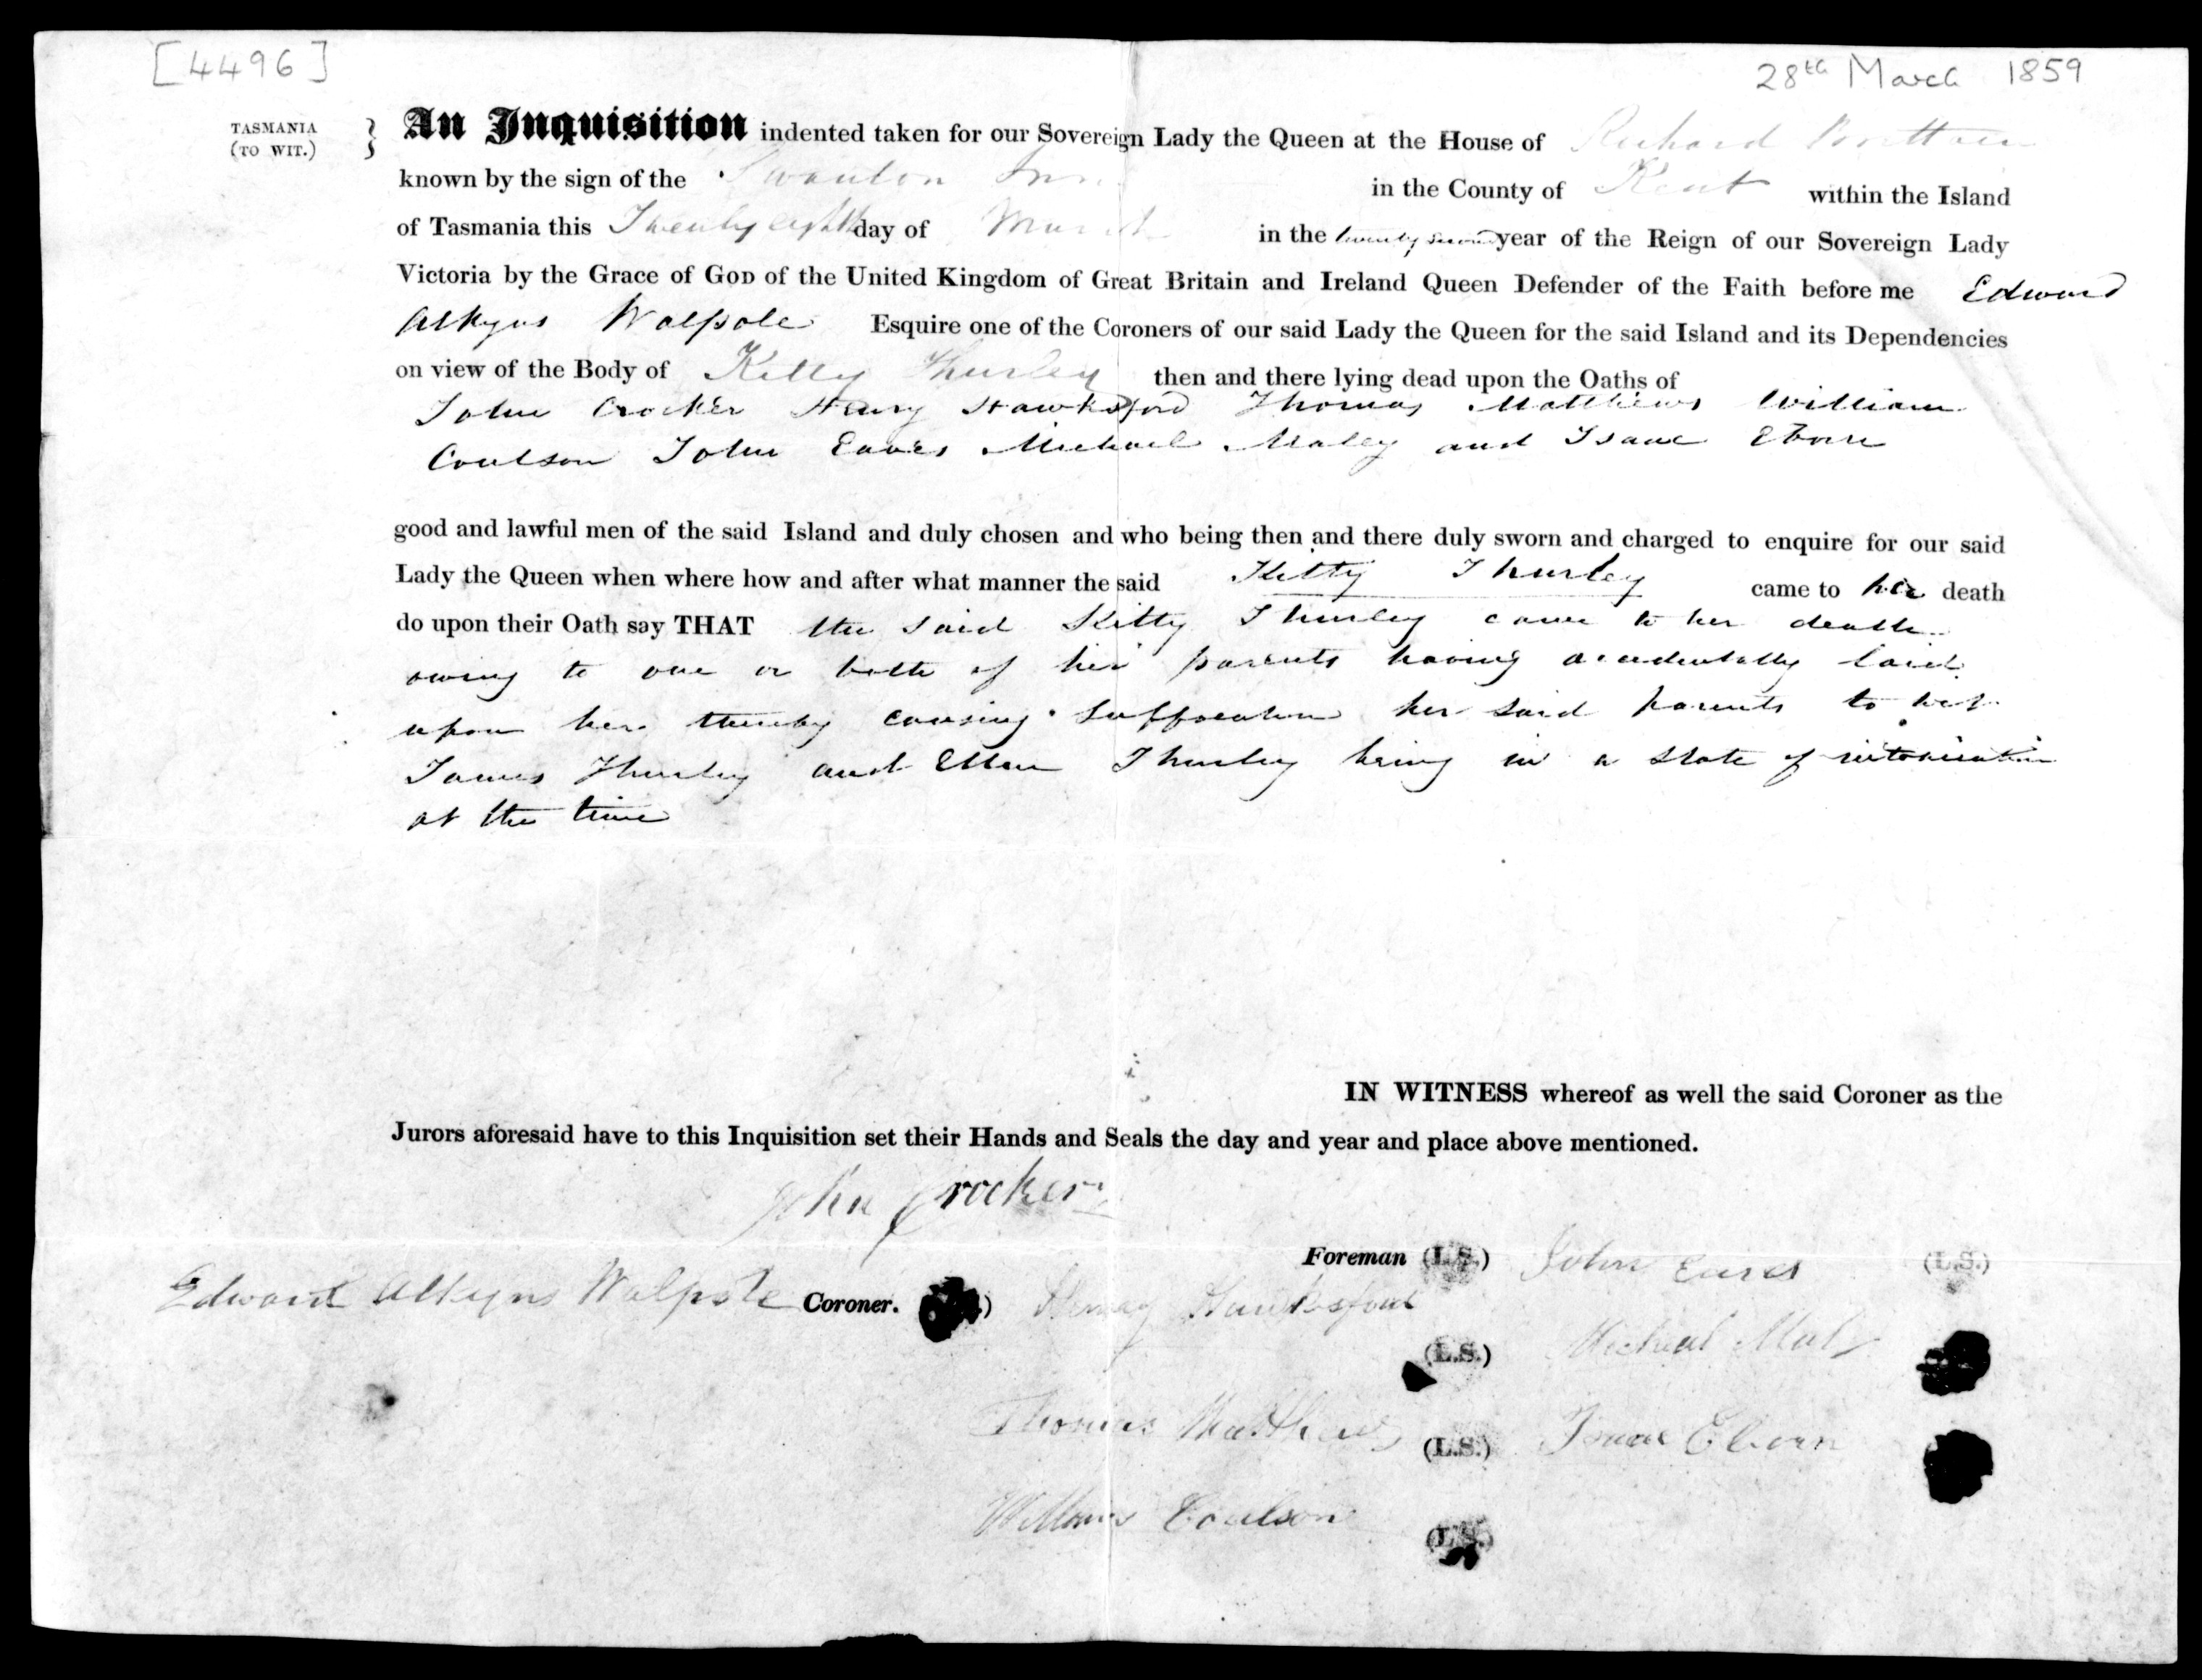 [4496]
28th March 1859
TASMANIA
(TO WIT.)
An Inquisition indented taken for our Sovereign Lady the Queen at the House of Richard
known by the sign of the Swanton Inn in the County of Kent within the Island
of Tasmania this Twenty eighth day of March in the twenty second year of the Reign of our Sovereign Lady
Victoria by the Grace of GOD of the United Kingdom of Great Britain and Ireland Queen Defender of the Faith before me Edward
Atkyns Walpole Esquire one of the Coroners of our said Lady the Queen for the said Island and its Dependencies
on view of the Body of Kitty Thurley then and there lying dead upon the Oaths of
John Crocker Henry Hawksford Thomas Matthews William
Coulson John Eaves Michael Maley and Isaac Eborn
good and lawful men of the said Island and duly chosen and who being then and there duly sworn and charged to enquire for our said
Lady the Queen when where how and after what manner the said Kitty Thurley came to her death
do upon their Oath say THAT the said Kitty Thurley came to her death
owing to one or both of her parents having accidentally laid
upon her thereby causing suffocation her said parents to wit
James Thurley and Ellen Thurley being in a state of intoxication
at the time
IN WITNESS whereof as well the said Coroner as the
Jurors aforesaid have to this Inquisition set their Hands and Seals the day and year and place above mentioned.
John Crocker
Foreman (L.S.) John Eaves (L.S.)
Edward Atkyns Walpole Coroner. Henry Hawksford
(L.S.) Micheal
Thomas Matthews (L.S.) Isaac Eborn
William Coulson (L.S.)